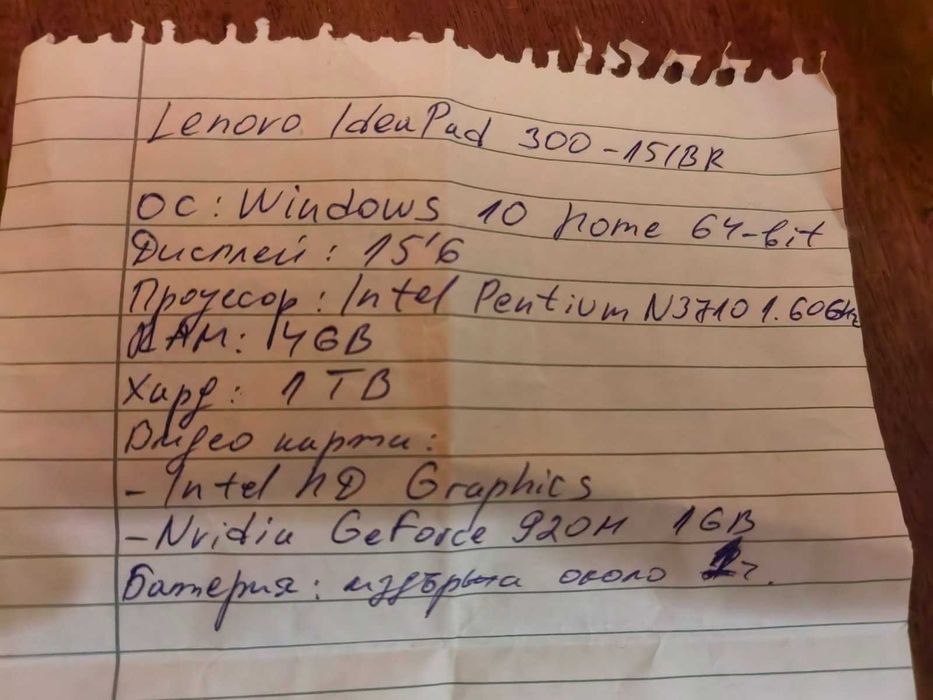 Lenovo IdeaPad 300-15IBR
ОС: Windows 10 home 64-bit
Дисплей: 15'6
Процесор: Intel Pentium N3710 1.60GHz
РАМ: 4GB
Хард: 1 TB
Видео карти:
- Intel HD Graphics
- Nvidia GeForce 920M 1GB
Батерия: издържа около ч.